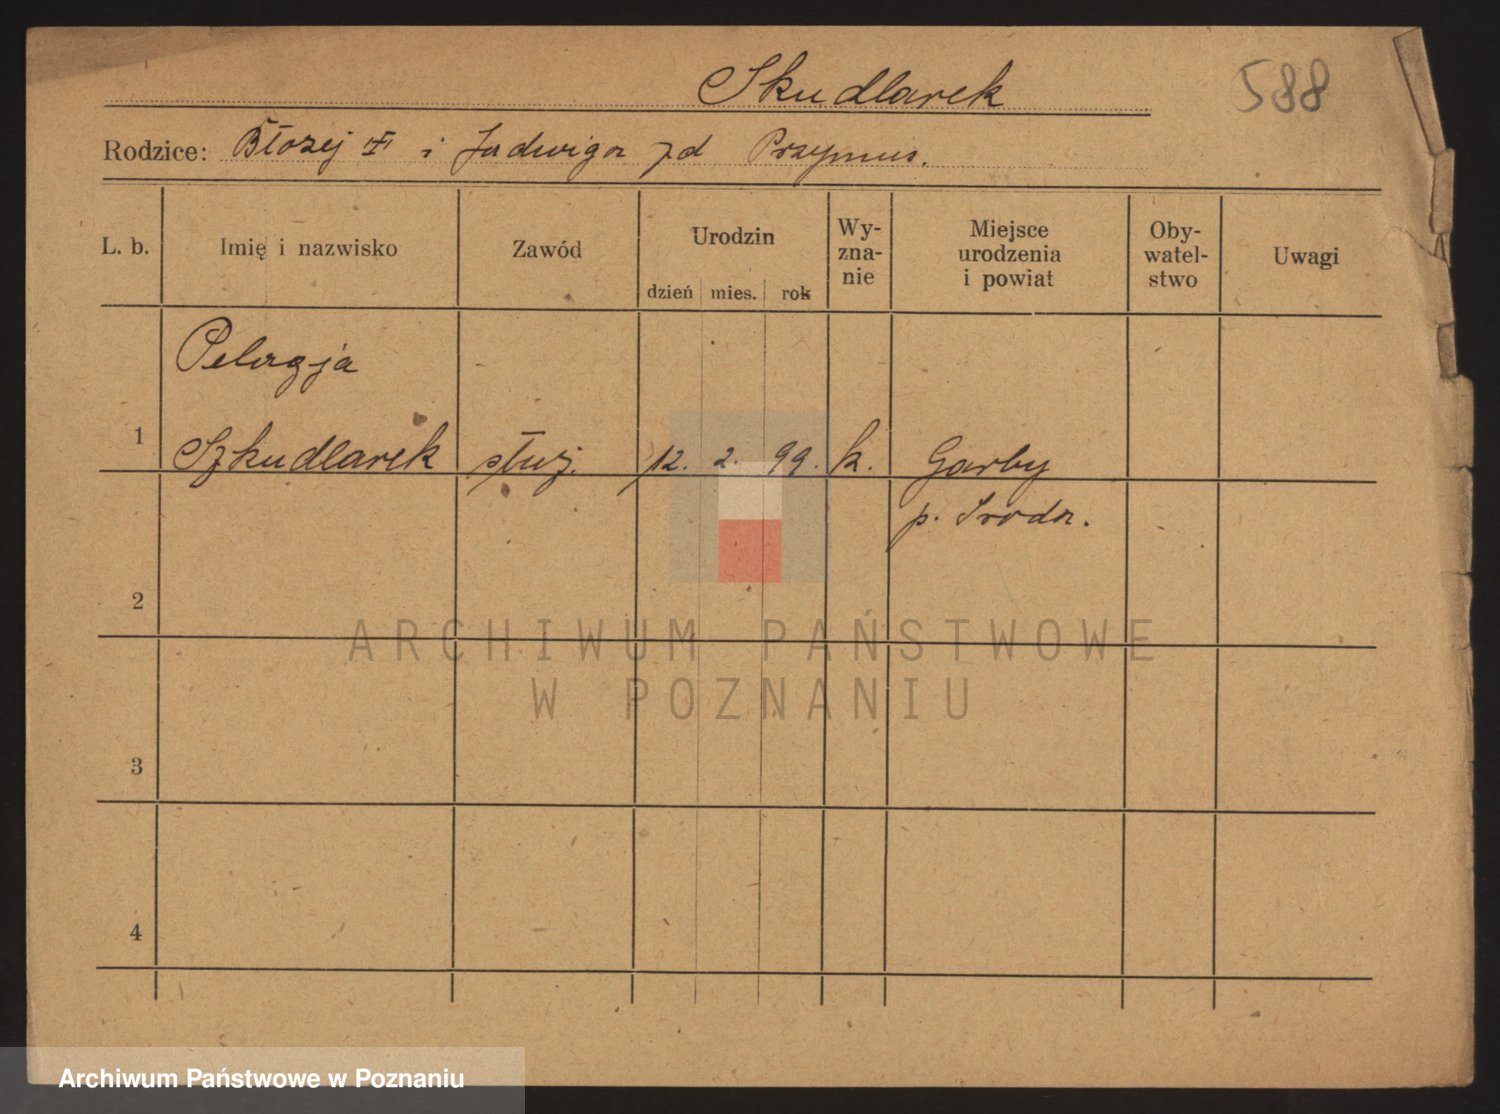 Skudlarek
588
Rodzice: Błozej i Jadwiga zd Przymus.
L. b. Imię i nazwisko Zawód Urodzin dzień mies. rok Wy-zna-nie Miejsce urodzenia i powiat Oby-watel-stwo Uwagi
Pelagja
1 Szkudlarek służ. 12. 2. 99. k. Garby
p. Sroda.
2
3
4
ARCHIWUM PAŃSTWOWE
W POZNANIU
Archiwum Państwowe w Poznaniu